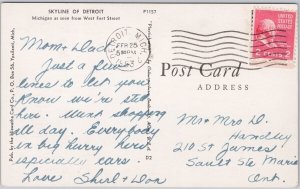 SKYLINE OF DETROIT
Michigan as seen from West Fort Street
P1157
DETROIT, MICH.
FEB 25
PM
1953
UNITED STATES POSTAGE
2 CENTS 2
Post Card
ADDRESS
Mom & Dad
Just a few
lines to let you
know we're still
here. Went shopping
all day. Everybody
in big hurry here
especially cars.
Love Shirl & Don
Mr & Mrs D.
Handley
210 St James
Sault Ste Marie
Ont.